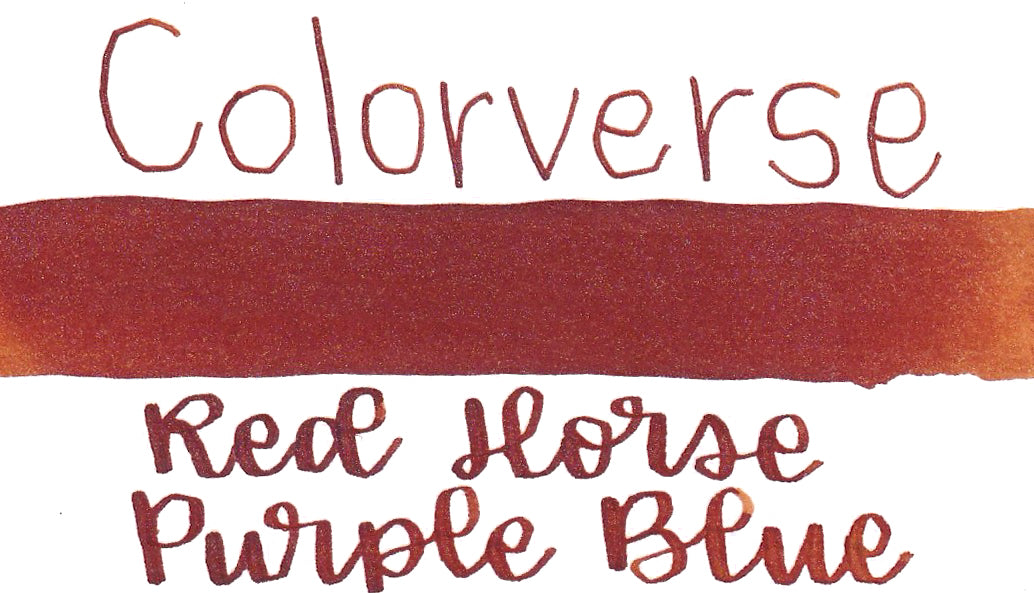 Colorverse
Red Horse
Purple Blue